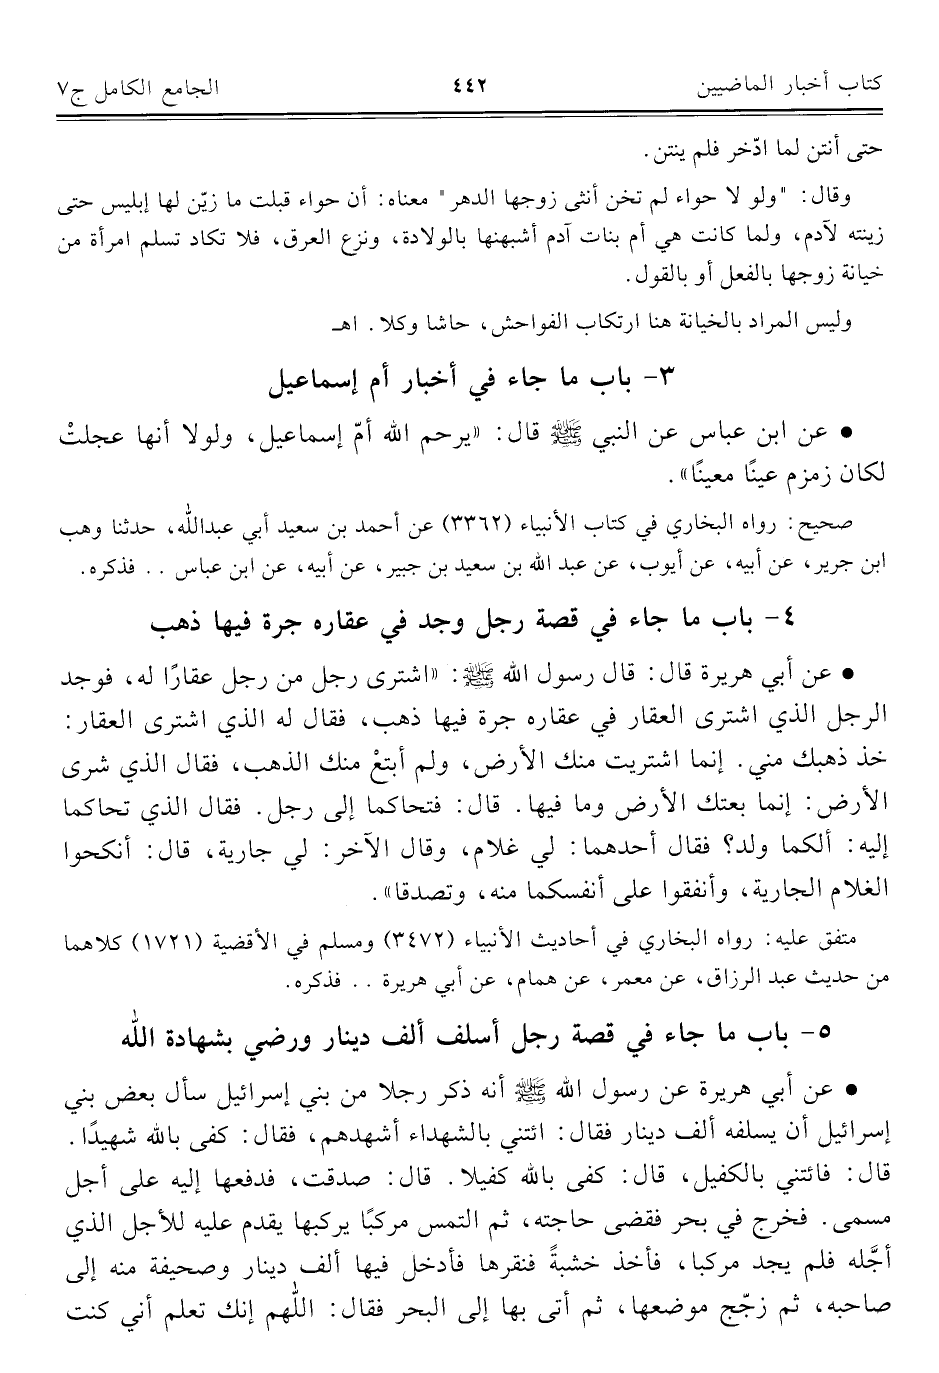 كتاب أخبار الماضيين ٤٤٢ الجامع الكامل ج٧
حتى أنتن لما ادّخر فلم ينتن.
وقال: "ولو لا حواء لم تخن أنثى زوجها الدهر" معناه: أن حواء قبلت ما زيّن لها إبليس حتى
زينته لآدم، ولما كانت هي أم بنات آدم أشبهنها بالولادة، ونزع العرق، فلا تكاد تسلم امرأة من
خيانة زوجها بالفعل أو بالقول.
وليس المراد بالخيانة هنا ارتكاب الفواحش، حاشا وكلا. اهـ
٣- باب ما جاء في أخبار أم إسماعيل
• عن ابن عباس عن النبي ﷺ قال: «يرحم الله أمّ إسماعيل، ولولا أنها عجلتْ
لكان زمزم عينًا معينًا».
صحيح: رواه البخاري في كتاب الأنبياء (٣٣٦٢) عن أحمد بن سعيد أبي عبدالله، حدثنا وهب
ابن جرير، عن أبيه، عن أيوب، عن عبد الله بن سعيد بن جبير، عن أبيه، عن ابن عباس .. فذكره.
٤- باب ما جاء في قصة رجل وجد في عقاره جرة فيها ذهب
• عن أبي هريرة قال: قال رسول الله ﷺ: «اشترى رجل من رجل عقارًا له، فوجد
الرجل الذي اشترى العقار في عقاره جرة فيها ذهب، فقال له الذي اشترى العقار:
خذ ذهبك مني. إنما اشتريت منك الأرض، ولم أبتعْ منك الذهب، فقال الذي شرى
الأرض: إنما بعتك الأرض وما فيها. قال: فتحاكما إلى رجل. فقال الذي تحاكما
إليه: ألكما ولد؟ فقال أحدهما: لي غلام، وقال الآخر: لي جارية، قال: أنكحوا
الغلام الجارية، وأنفقوا على أنفسكما منه، وتصدقا».
متفق عليه: رواه البخاري في أحاديث الأنبياء (٣٤٧٢) ومسلم في الأقضية (١٧٢١) كلاهما
من حديث عبد الرزاق، عن معمر، عن همام، عن أبي هريرة .. فذكره.
٥- باب ما جاء في قصة رجل أسلف ألف دينار ورضي بشهادة الله
• عن أبي هريرة عن رسول الله ﷺ أنه ذكر رجلا من بني إسرائيل سأل بعض بني
إسرائيل أن يسلفه ألف دينار فقال: ائتني بالشهداء أشهدهم، فقال: كفى بالله شهيدًا.
قال: فائتني بالكفيل، قال: كفى بالله كفيلا. قال: صدقت، فدفعها إليه على أجل
مسمى. فخرج في بحر فقضى حاجته، ثم التمس مركبًا يركبها يقدم عليه للأجل الذي
أجَّله فلم يجد مركبا، فأخذ خشبةً فنقرها فأدخل فيها ألف دينار وصحيفة منه إلى
صاحبه، ثم زجّج موضعها، ثم أتى بها إلى البحر فقال: اللّٰهم إنك تعلم أني كنت